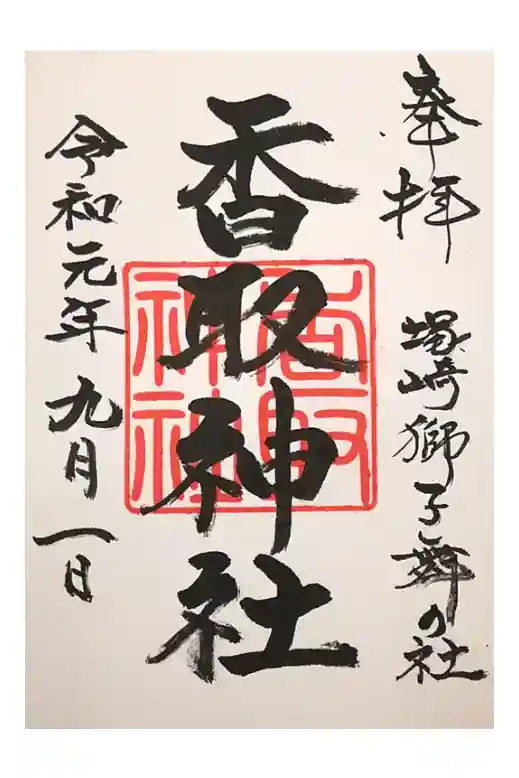 奉拝 塚崎獅子舞の社
香取神社
香取神社
令和元年九月一日